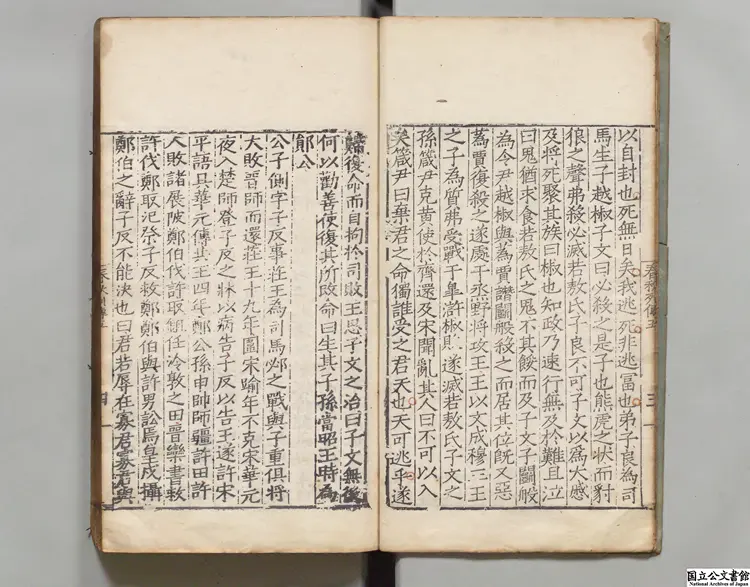 以自封也死無日矣我逃死非逃冨也弟子良為司
馬生子越椒子文曰必殺之是子也熊虎之狀而豺
狼之聲弗殺必滅若敖氏子良不可子文以爲大慼
及將死聚其族曰椒也知政乃速行無及於難且泣
曰鬼猶求食若敖氏之鬼不其餒而及子文子鬭般
為令尹越椒與蒍賈譖鬭般殺之而居其位既又惡
蒍賈復殺之遂處于烝野將攻王王以文成穆三王
之子為質弗受戰于皐滸椒敗遂滅若敖氏子文之
孫箴尹克黃使於齊還及宋聞亂其人曰不可以入
矣箴尹曰棄君之命獨誰受之君天也天可逃乎遂
歸復命而自拘於司敗王思子文之治曰子文無後
何以勸善使復其所改命曰生其子孫當昭王時為
鄖公
公子側字子反事莊王為司馬邲之戰與子重俱將
大敗晉師而還莊王十九年圍宋踰年不克宋華元
夜入楚師登子反之牀以病告子反以告王遂許宋
平語具華元傳共王四年鄭公孫申帥師疆許田許
人敗諸展陂鄭伯伐許取鉏任泠敦之田晉欒書救
許伐鄭取汜祭子反救鄭鄭伯與許男訟焉皇戌攝
鄭伯之辭子反不能決也曰君若辱在寡君寡君與
春秋列傳五
三
四
国立公文書館
National Archives of Japan